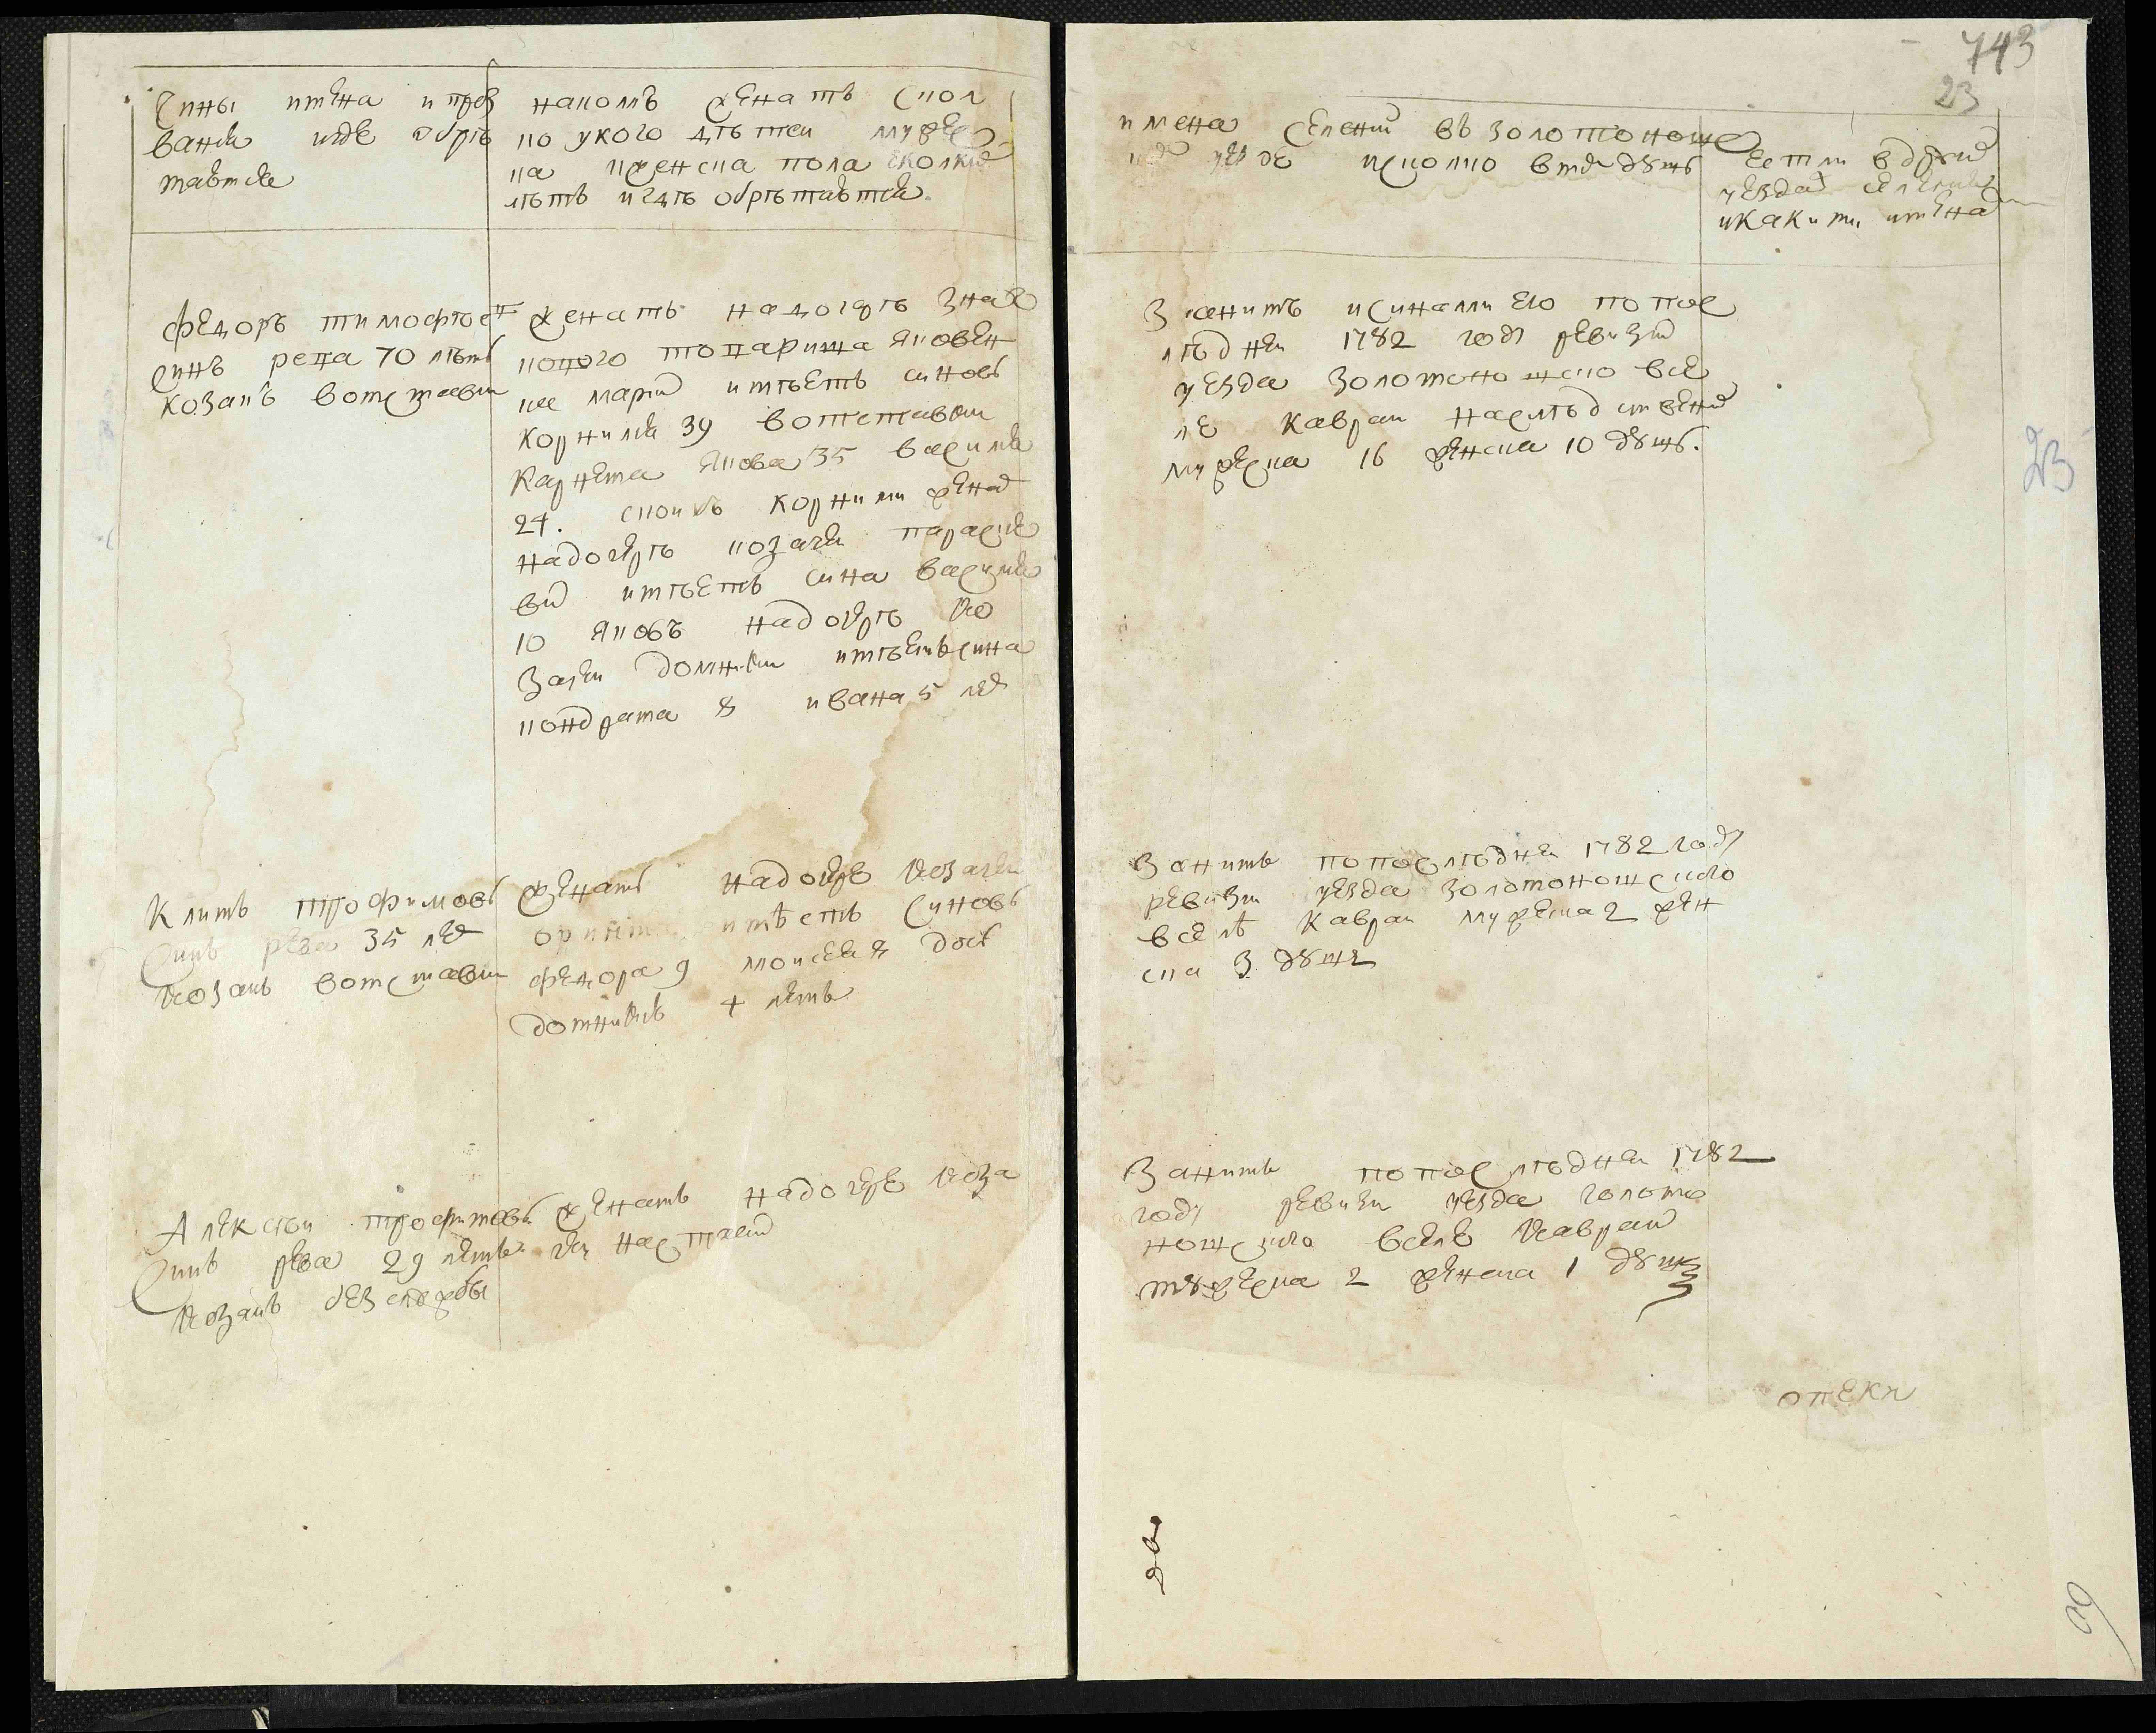 743
23
Чины имена и проз
вания и где обрѣ
таются
на комъ женатъ скол
ко у кого дѣтей мужес
ка и женска пола сколких
лѣтъ и гдѣ обрѣтаются.
имена селений въ золотонош
уезде и сколко в тех душъ
естли в других
уездах селения
и какими имена
Федоръ тимофѣев
синъ репа 70 лѣтъ
козакъ в отставки
женатъ на дочерѣ знач
кового товарища яковен
ка марии имѣетъ синовъ
корнилия 39 в отставки
карнета якова 35 василия
24. с коихъ корнили женат
на дочерѣ козачи параски
ви имѣетъ сина василия
10 яковъ на дочерѣ ко
зачи домники имѣетъ сина
кондрата 8 ивана 5 лет
З онимъ и синами его по пос
лѣдней 1782 году ревизии
уезда золотоношско в се
ле каврай наслѣдствених
мужеска 16 женска 10 душъ.
Климъ трофимовъ
синъ репа 35 лет
козакъ в отставки
женатъ на дочере козачи
имѣетъ синовъ
федора 9 моисея 8 доч
домникию 4 летъ
З онимъ по послѣдней 1782 году
ревизии уезда золотоношского
в селѣ каврай мужеска 2 жен
ска 3 душъ
Алексѣй трофимовъ
синъ репа 29 летъ
козакъ без службы
женатъ на дочере коза
чи настасии
З онимъ по послѣдней 1782
году ревизии уезда золото
ношского в селе каврай
мужеска 2 женска 1 душъ
опеки
23